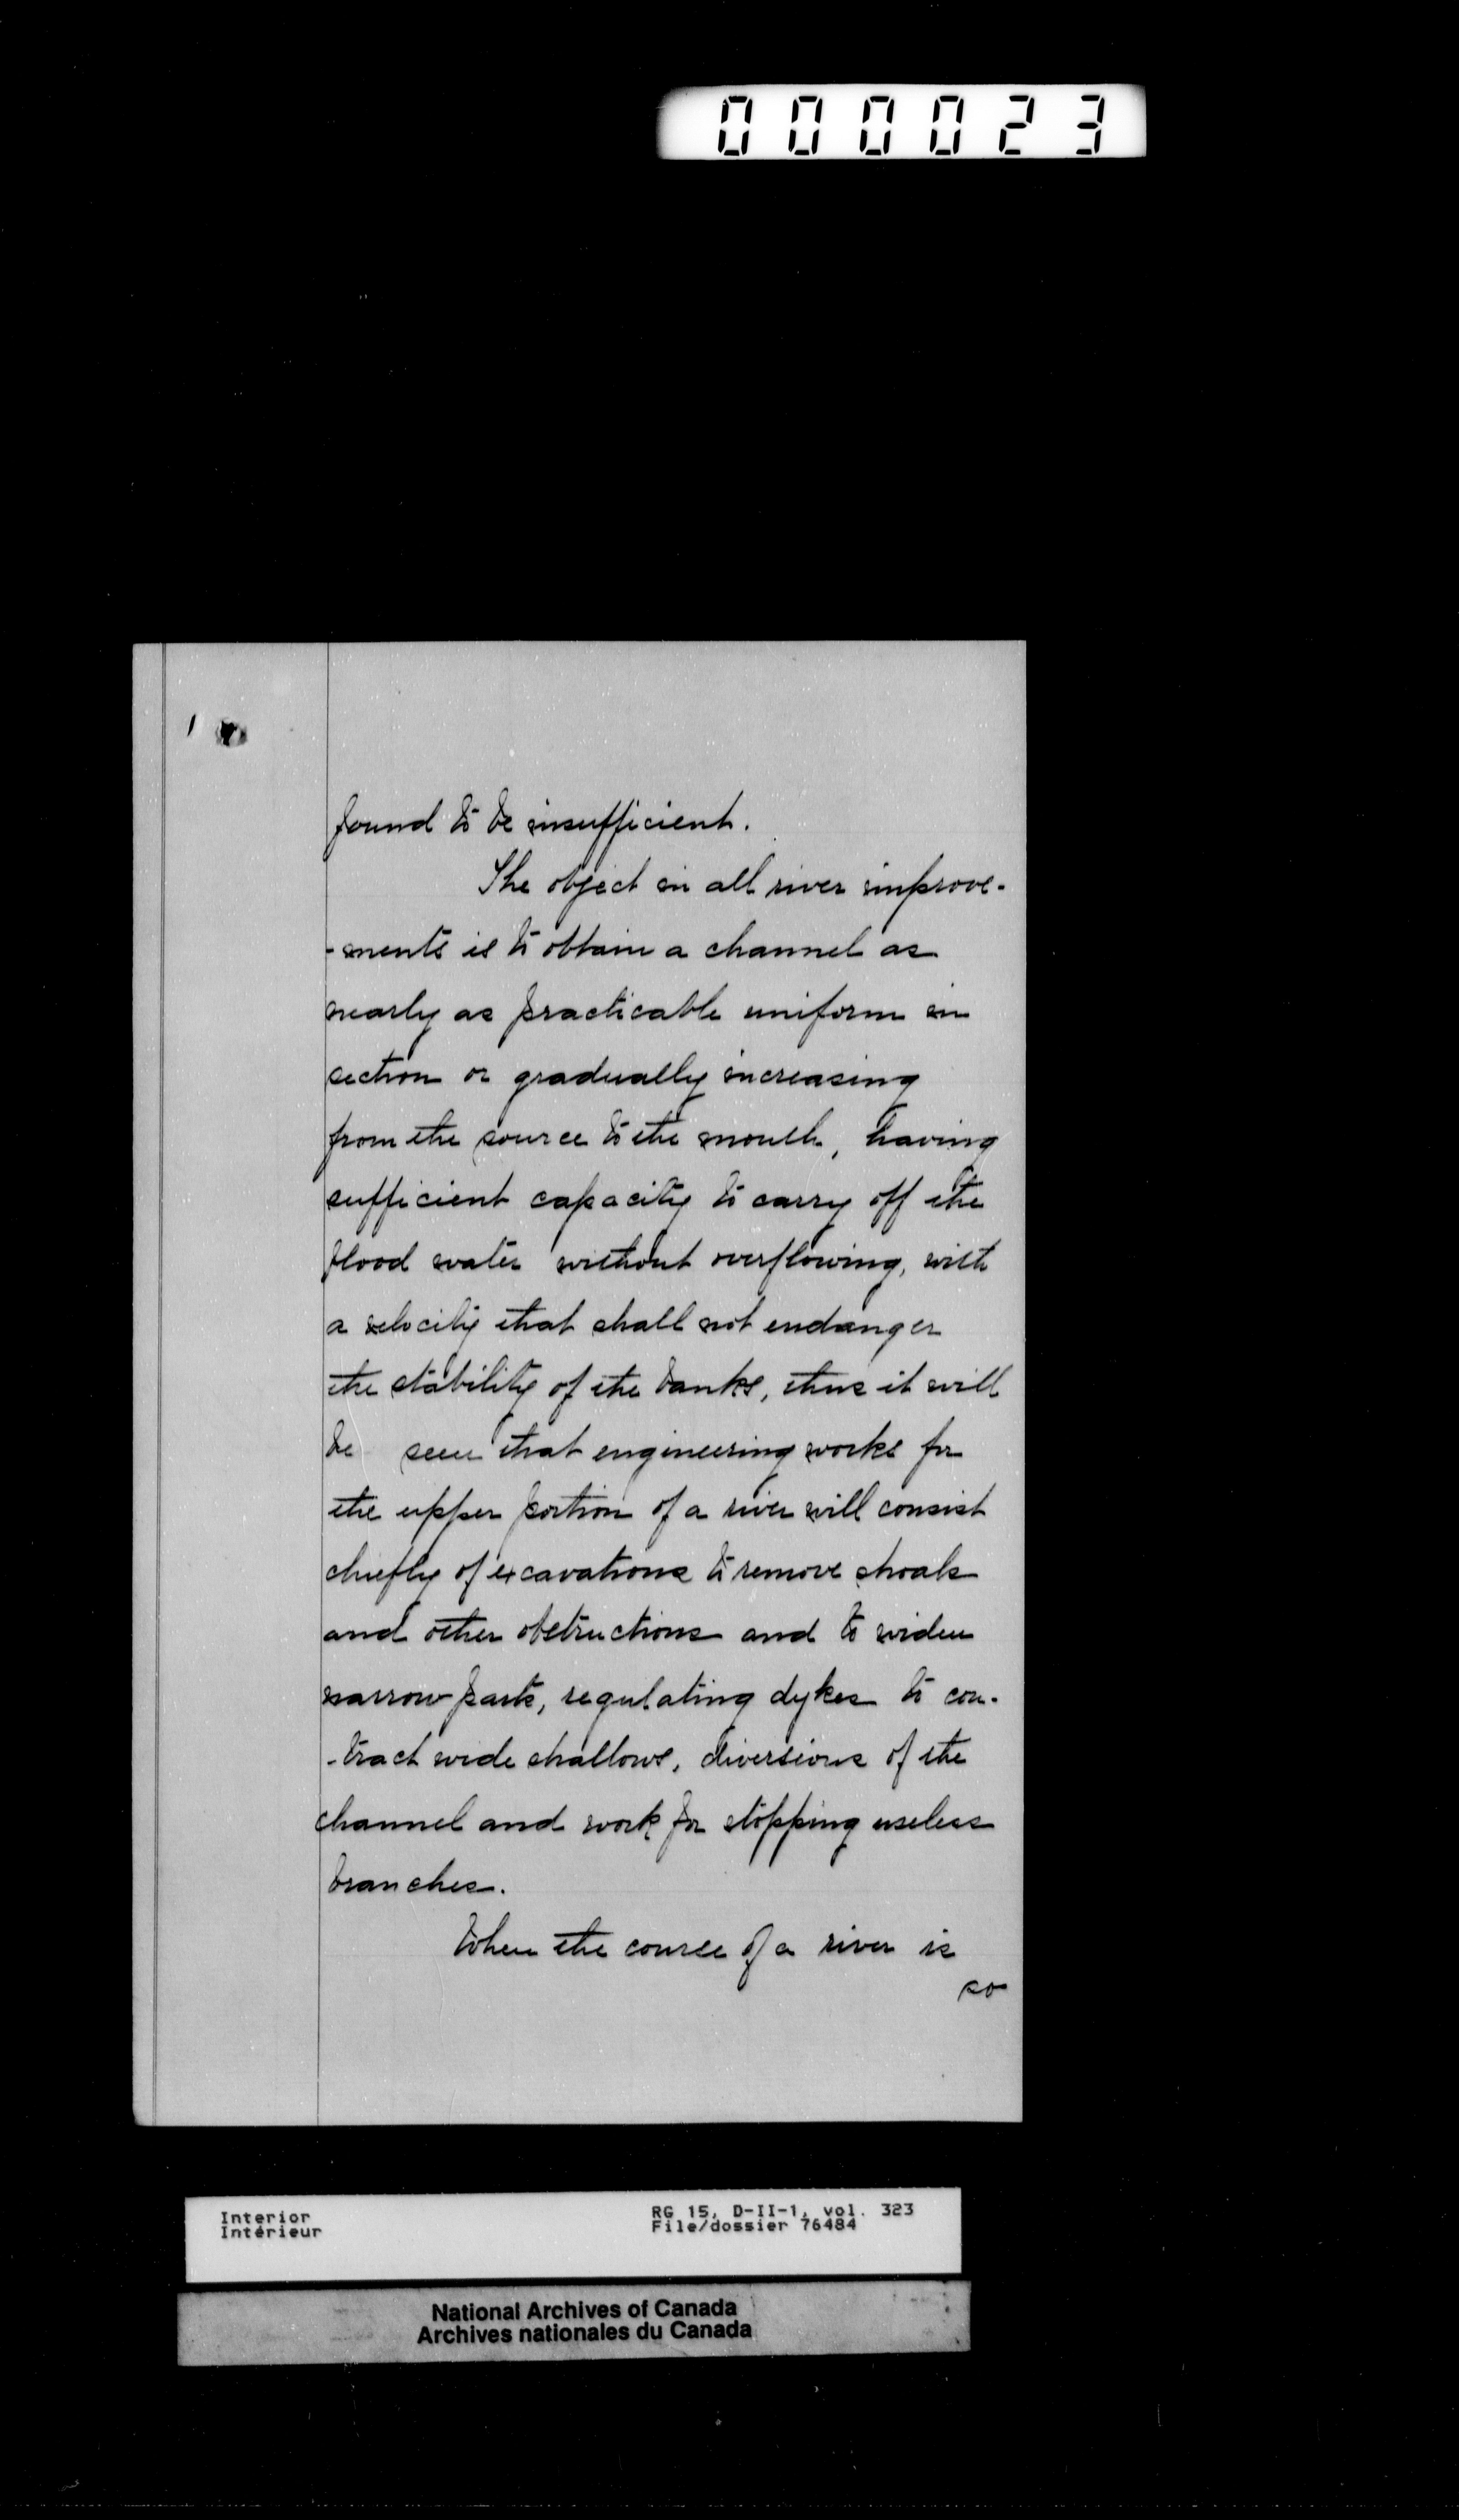 000023
found to be insufficient.
The object in all river improve-
-ments is to obtain a channel as
nearly as practicable uniform in
section or gradually increasing
from the source to the mouth, having
sufficient capacity to carry off the
flood water without overflowing, with
a velocity that shall not endanger
the stability of the banks, thus it will
be seen that engineering works for
the upper portion of a river will consist
chiefly of excavations to remove shoals
and other obstructions and to widen
narrow parts, regulating dykes to con-
-tract wide shallows, diversions of the
channel and work for stopping useless
branches.
When the course of a river is
so
Interior
Intérieur
RG 15, D-II-1, vol. 323
File/dossier 76484
National Archives of Canada
Archives nationales du Canada